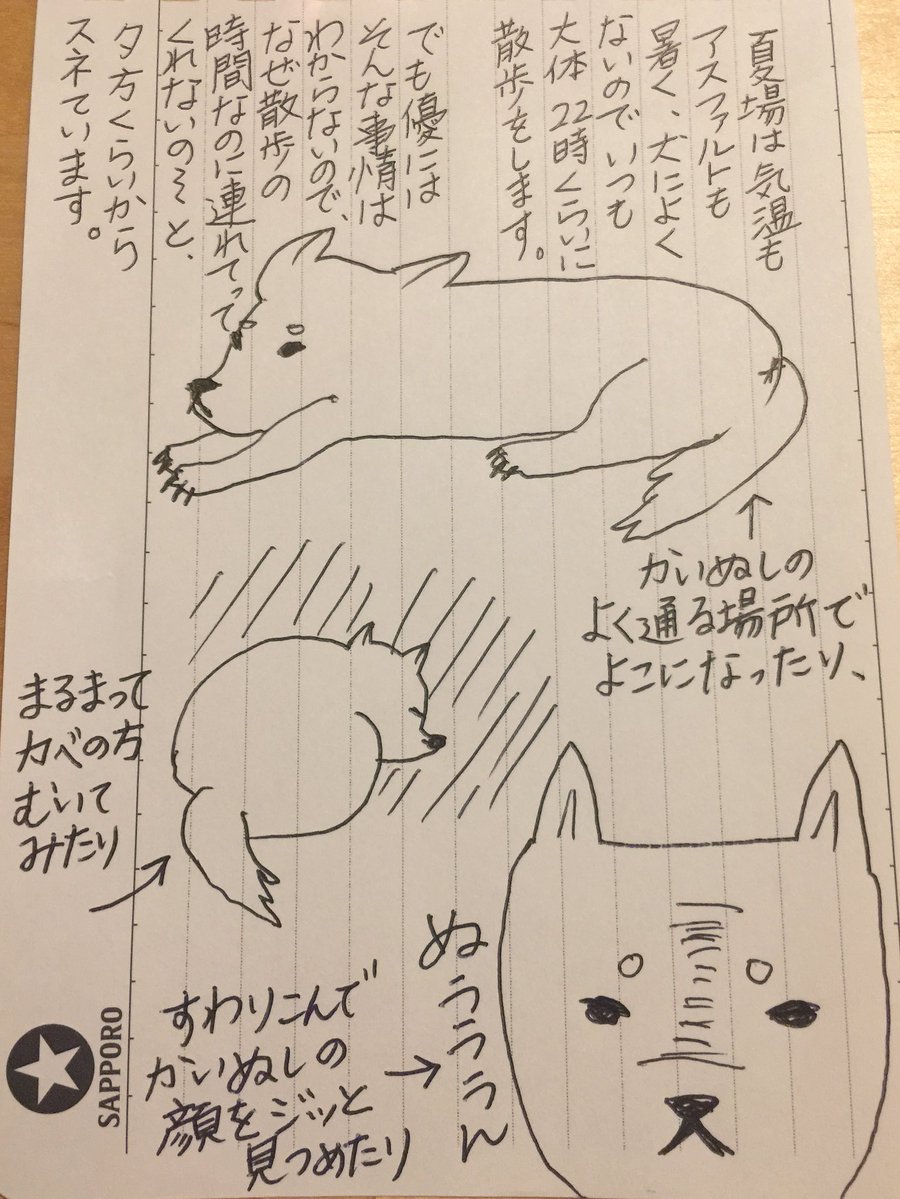 夏場は気温も
アスファルトも
暑く、犬によく
ないのでいつも
大体22時くらいに
散歩をします。
でも優には
そんな事情は
わからないので、
なぜ散歩の
時間なのに連れてって
くれないのそと、
夕方くらいから
スネています。
かいぬしの
よく通る場所で
よこになったり、
まるまって
カベの方
むいて
みたり
ぬぅぅぅぅん
すわりこんで
かいぬしの
顔をジッと
見つめたり
SAPPORO